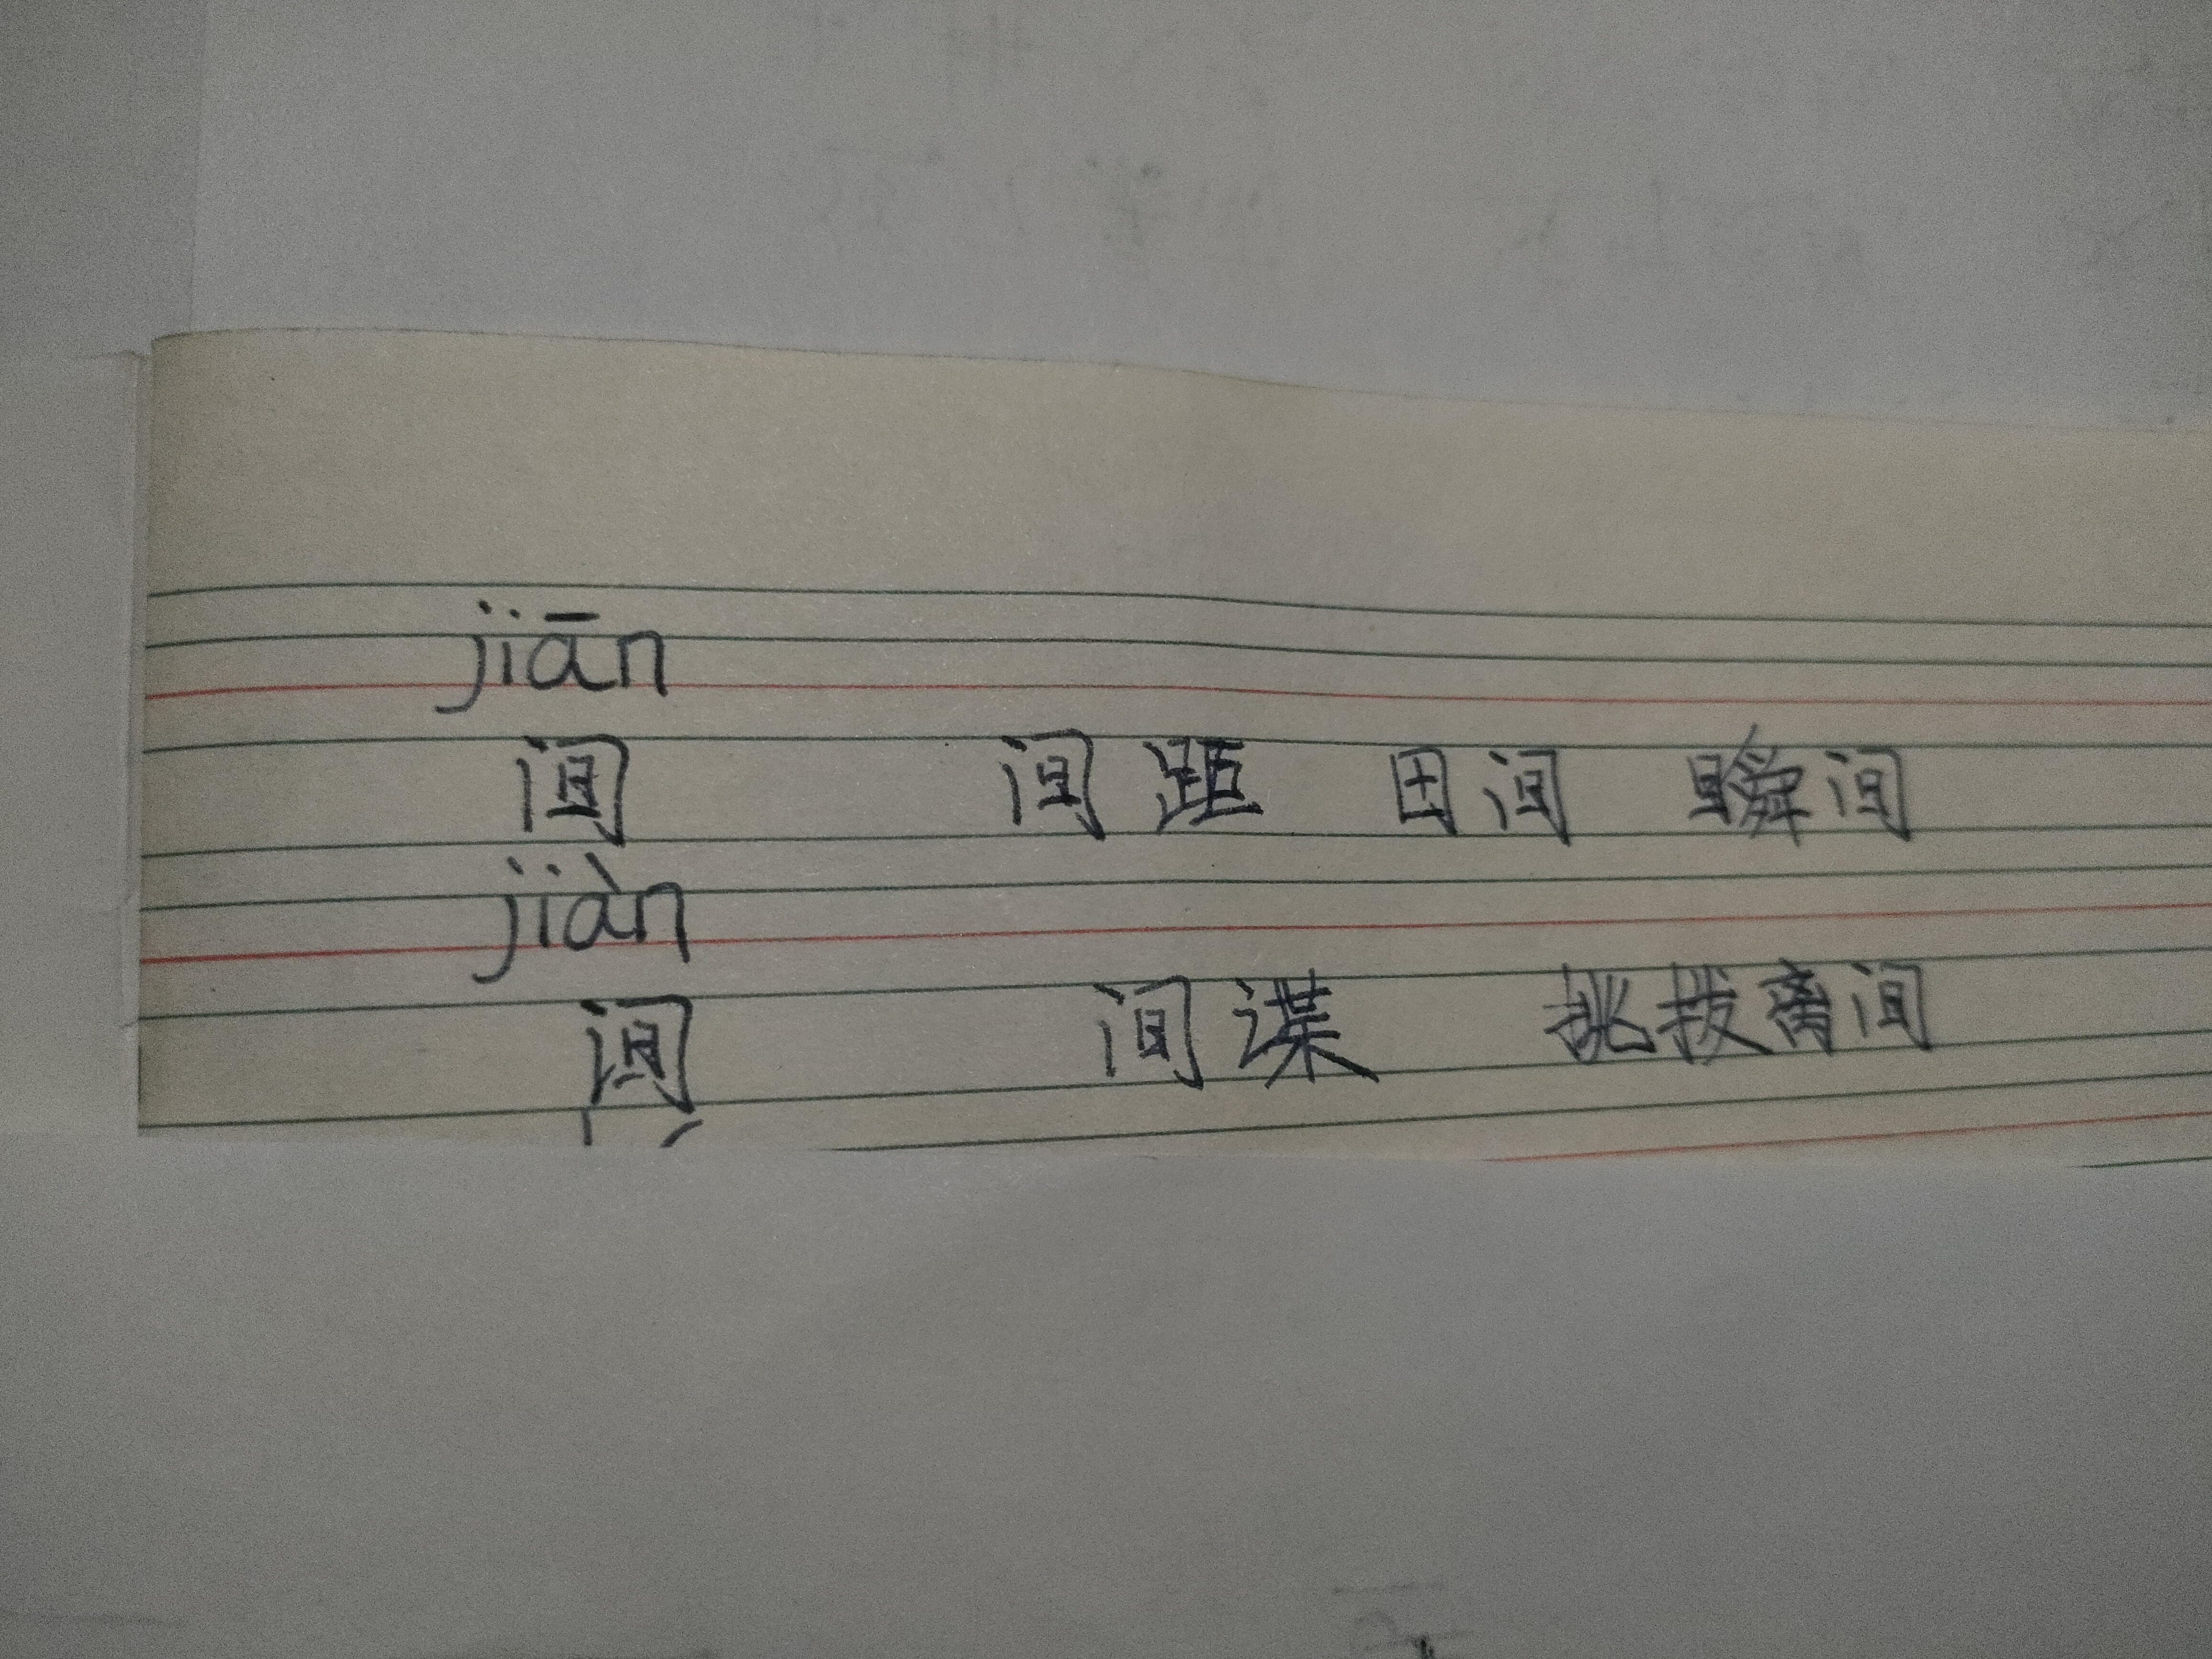 jiān
间 间距 田间 瞬间
jiàn
间 间谍 挑拨离间